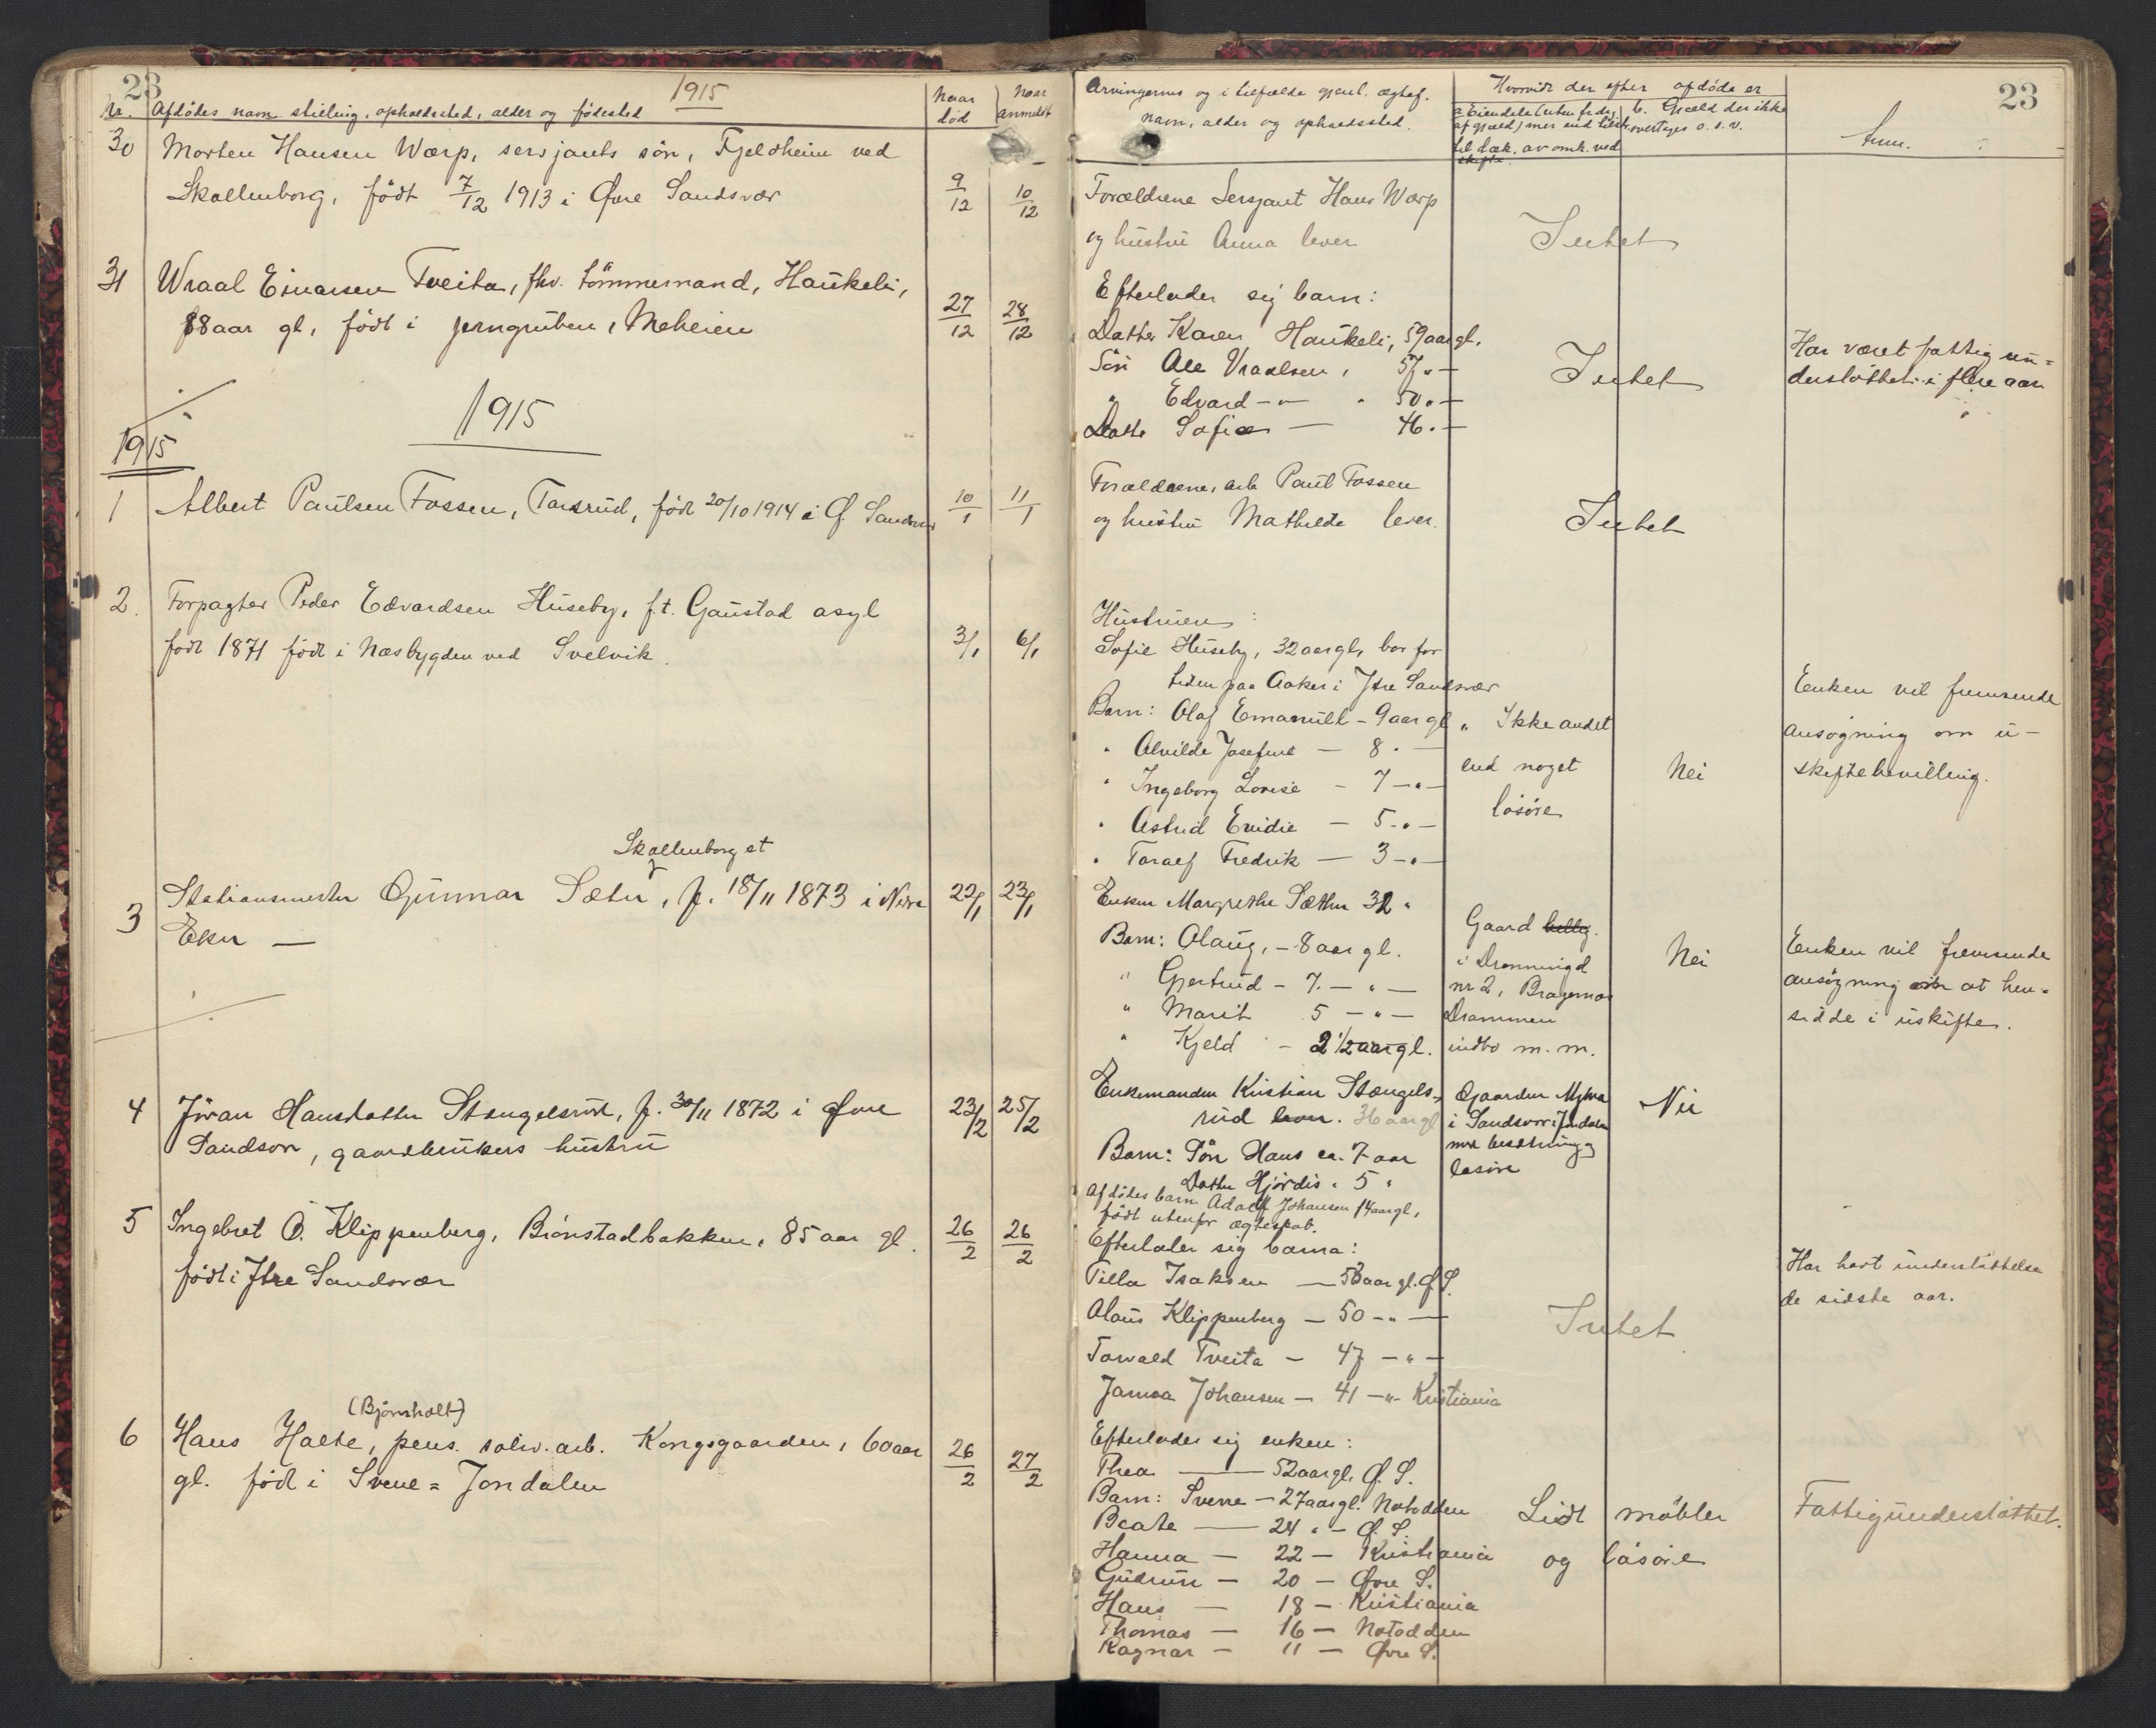 23
1915
Nr. Afdødes navn stilling, opholdssted, alder og fødested
Naar død
Naar anmeldt
30 Morten Hansen Wærp, sersjants søn, Fjeldheim ved
Skollenborg, født 7/12 1913 i Øvre Sandsvær
9/12 10/12
31 Wraal Einarsen Tveita, fhv. tömmermand, Haukeli,
88 aar gl, født i jerngruben, Meheien
27/12 28/12
1915
1915
1 Albert Paulsen Fossen, Torsrud, född 20/10 1914 i Ø. Sandsvær
10/1 11/1
2. Forpagter Peder Edvardsen Huseby, f.t. Gaustad asyl
född 1871 född i Næsbygden ved Svelvik.
3/1 6/1
Skollenborg st
3 Stationsmester Gunnar Sæter, f. 18/11 1873 i Nedre
Eker —
22/1 23/1
4 Jöran Hansdatter Stengelsrud, f. 30/11 1872 i Øvre
Sandsvr, gaardbrukers hustru
23/2 25/2
5 Ingebret O. Klippenberg, Brönstadbakken, 85 aar gl.
född i Ytre Sandsvær
26/2 26/2
(Bjørnholt)
6 Hans Holte, pens. sølv. arb. Kongsgaarden, 60 aar
gl. född i Svene = Jondalen
26/2 27/2
23
Arvingernes og i tilfælde gjenl. ægtef.
navn, alder og opholdssted.
Hvorvidt der efter afdøde er
a. Eiendele (uten fradrag
af gjæld) mer end tilstr.
til dæk. av omk. ved
skifte
b. Gjæld der ikke
overtages o.s.v.
Anm.
Forældrene Sersjant Hans Wærp
og hustru Anna lever
Intet
Efterlader sig barn:
Datter Karen Haukeli, 59 aar gl.
Sön Ole Vraalsen, 57 " —
" Edvard — " — " 50 " —
Datter Sofie — 46 " —
Intet
Har været fattig un-
derstöttet i flere aar
Forældrene, arb. Paul Fossen
og hustru Mathilde lever.
Intet
Hustruen:
Sofie Huseby, 32 aar gl, bor for
tiden paa Aaker i Ytre Sandsvær
Barn: Olaf Emanuel — 9 aar gl
" Alvilde Josefine — 8 " —
" Ingeborg Lovise — 7 — " —
" Astrid Enidie — 5 — " —
" Toralf Fredrik — 3 — " —
" Ikke andet
end noget
lösöre
Nei
Enken vil fremsende
ansögning om u-
skiftebevilling.
Enken Margrethe Sæther 32 "
Barn: Olaug, — 8 aar gl.
" Gjertrud — 7. — " —
" Marit 5 — " —
" Kjeld — 2 1/2 aar gl.
Gaard
i Dronningd
nr 2, Bragernæs
Drammen
indbo m. m.
Nei
Enken vil fremsende
ansögning om at hen-
sidde i uskifte.
Enkemanden Kristian Stengels-
rud lever. 36 aar gl
Barn: Sön Hans ca. 7 aar
Datter Hjördis " 5 "
Afdödes barn Adolf Johansen 14 aar gl,
född utenfor ægteskab.
Gaarden Myhra
i Sandsvær i Jondalen
med besetning og
lösöre
Nei
Efterlader sig barna:
Tilla Isaksen — 53 aar gl. Ø S.
Olaus Klippenberg — 50 — " —
Torvald Tveita — 47 — " —
Johansen — 41 — " — Kristiania
Intet
Har havt understöttelse
de sidste aar.
Efterlader sig enken:
Thea —— 52 aar gl. Ø. S.
Barn: Sverre — 27 aar gl. Notodden
Beate —— 24 " — Ø. S.
Hanna — 22 — Kristiania
Gudrun — 20 — Øvre S.
Hans — 18 — Kristiania
Thomas — 16 — Notodden
Ragnar — 11 — Øvre S.
Lidt möbler
og lösöre
Fattigunderstöttet.